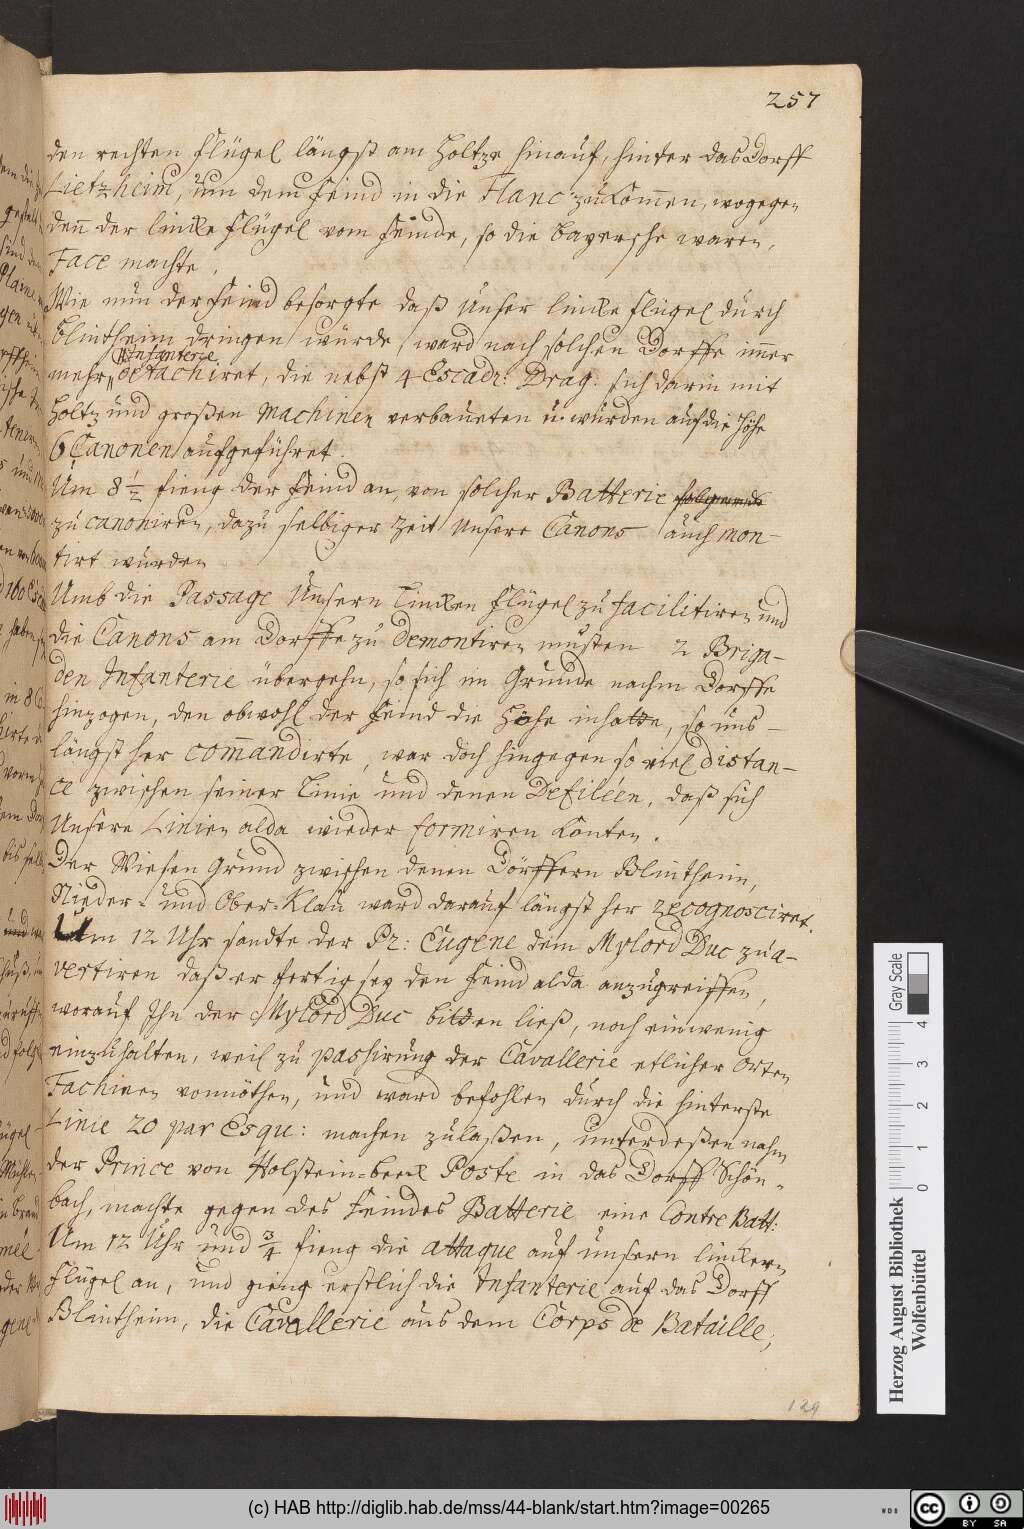 257
den rechten Flügel längst am Holtze hinauf, hinter das Dorff
Lietzheim, um dem Feind in die Flanc zukom̅en, wogege-
den̅ der lincke Flügel vom Feinde, so die Bayersche waren,
Face machte.
Wie nun der Feind besorgte daß Unser lincke Flügel durch
Blintheim dringen würde, ward nach solchen Dorffe im̅er
Infanterie
mehr detachiret, die nebst 4 Escadr: Drag. sich darin mit
Holtz und großen Machinen verbaueten u. wurden auf die Höhe
6 Canonen aufgeführet.
Um 8 ½ fieng der Feind an, von solcher Batterie
zu canoniren, dazu selbiger Zeit Unsere Canons auch mon-
tirt wurden
Umb die Passage Unsern Lincken Flügel zu facilitiren und
die Canons am Dorffe zu demontiren musten 2 Briga-
den Infanterie übergehn, so sich im Grunde nachm Dorffe
hinzogen, den obwohl der Feind die Höhe inhatte, so uns-
längst her com̅andirte, war doch hingegen so viel distan-
ce zwischen seiner Linie und denen Defiléen, daß sich
Unsere Linien alda wieder formiren konten.
Der Wiesen Grund zwischen denen Dörffern Blintheim,
Nieder- und Ober-Klau ward darauf längst her recognosciret.
Um 12 Uhr sandte der Pr: Eugene dem Mylord Duc zu a-
vertiren daß er fertig sey den Feind alda anzugreiffen,
worauf Ihn der Mylord Duc bitten ließ, noch ein wenig
einzuhalten, weil zu passirung der Cavallerie etlicher Orten
Fachinen vonnöthen, und ward befohlen durch die hinterste
Linie 20 par Esqu: machen zulaßen, unterdeßen nahm
der Prince von Holstein-beck Poste in das Dorff Schön-
bach, machte gegen des Feindes Batterie eine Contre Batt:
Um 12 Uhr und ¾ fieng die attaque auf unsern linckern
Flügel an, und gieng erstlich die Infanterie auf das Dorff
Blintheim, die Cavallerie aus dem Corps de Bataille;
129
Gray Scale
0 1 2 3 4
Herzog August Bibliothek
Wolfenbüttel
(c) HAB http://diglib.hab.de/mss/44-blank/start.htm?image=00265
WDB
cc BY SA